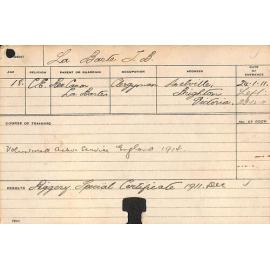 La Barte T. D.
AGE RELIGION PARENT OR GUARDIAN OCCUPATION ADDRESS DATE OF ENTRANCE
18. C.E. Rev Canon Clergyman Brighton 24.1.11.
La Barte Victoria Left
COURSE OF TRAINING
Volunteered Active Service England 1914.
RESULTS Piggery Special Certificate 1911. Dec